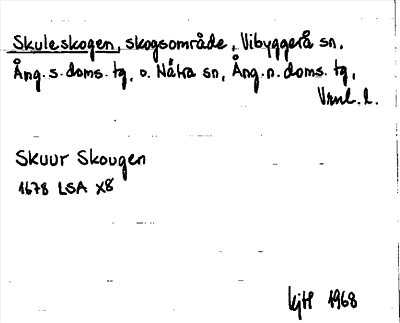 Skuleskogen, skogsområde, Vibyggerå sn,
Ång. s. doms. tg, o. Nätra sn, Ång. n. doms. tg,
Vnl. l.
Skuur Skougen
1678 LSA X8
1968